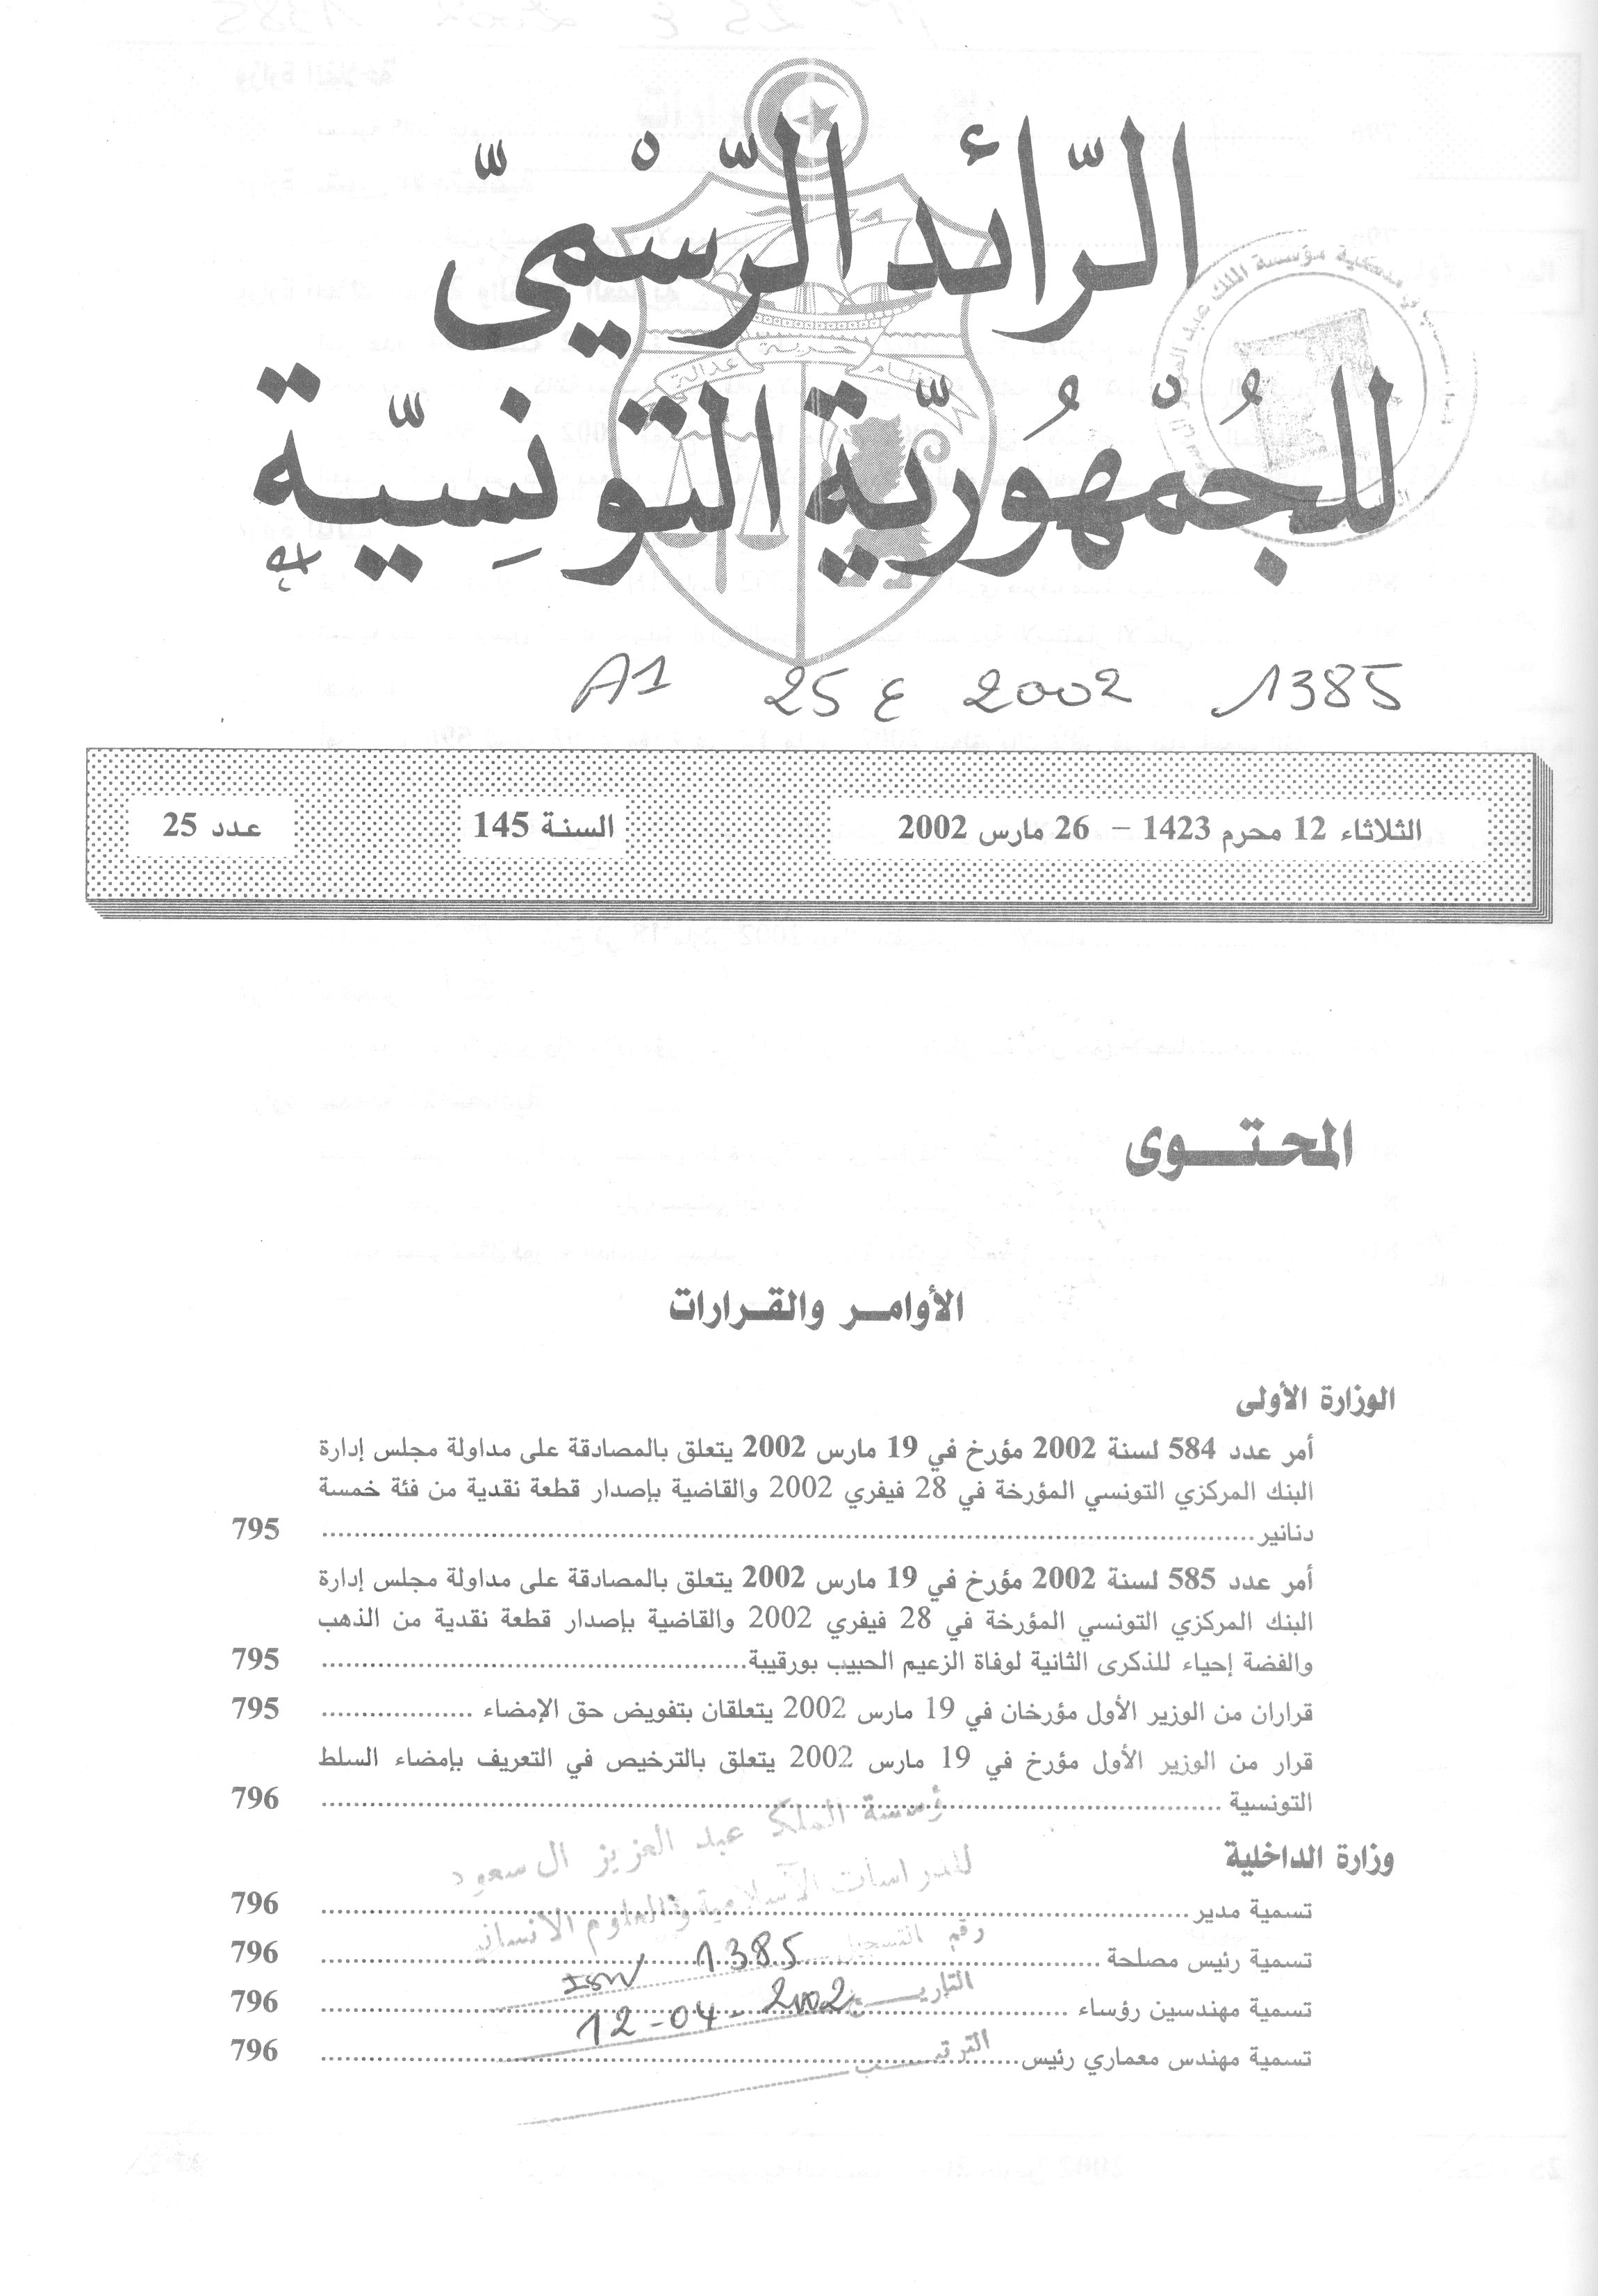 الرّائد الرّسْميّ
للجُمْهُوريّة التونسِيّة
نظام حرية عدالة
A1 25 ع 2002 1385
الثلاثاء 12 محرم 1423 – 26 مارس 2002
السنة 145
عدد 25
المحتوى
الأوامر والقرارات
الوزارة الأولى
أمر عدد 584 لسنة 2002 مؤرخ في 19 مارس 2002 يتعلق بالمصادقة على مداولة مجلس إدارة
البنك المركزي التونسي المؤرخة في 28 فيفري 2002 والقاضية بإصدار قطعة نقدية من فئة خمسة
دنانير ........ 795
أمر عدد 585 لسنة 2002 مؤرخ في 19 مارس 2002 يتعلق بالمصادقة على مداولة مجلس إدارة
البنك المركزي التونسي المؤرخة في 28 فيفري 2002 والقاضية بإصدار قطعة نقدية من الذهب
والفضة إحياء للذكرى الثانية لوفاة الزعيم الحبيب بورقيبة ........ 795
قراران من الوزير الأول مؤرخان في 19 مارس 2002 يتعلقان بتفويض حق الإمضاء ........ 795
قرار من الوزير الأول مؤرخ في 19 مارس 2002 يتعلق بالترخيص في التعريف بإمضاء السلط
التونسية ........ 796
وزارة الداخلية
تسمية مدير ........ 796
تسمية رئيس مصلحة ........ 796
تسمية مهندسين رؤساء ........ 796
تسمية مهندس معماري رئيس ........ 796
مؤسسة الملك عبد العزيز ال سعود
للدراسات الاسلامية والعلوم الانسانية
رقم التسجيل 1385
التاريخ 12-04-2002
الترتيب